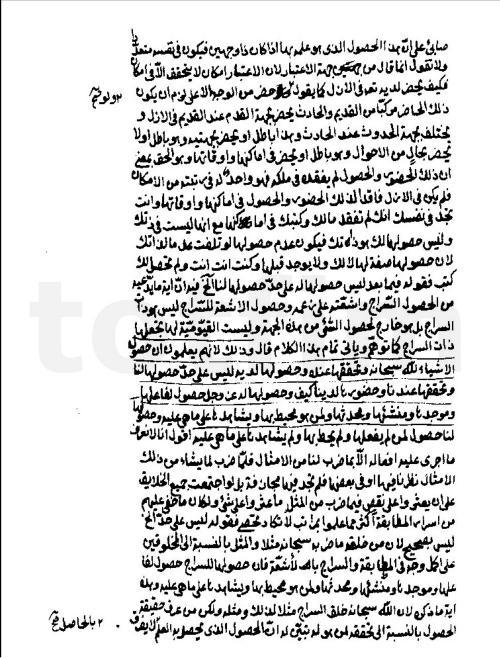 صابئ على انه بهذا الحصول الذي هو علمه بها اذا كان ذا وجهين فيكون في نفسه متعددا
ولا تقول انما قال من جهة الاعتبار لان الاعتبار امكان لا يتحقق الا في امكان
فكيف يحضر لديه تعالى في الازل كما يقول حضر من الوجه الاعلى لزم ان يكون
ذلك الحاضر مركبا من القديم والحادث يحضر بجهة القدم عند القديم في الازل و
يختلف بجهة الحدوث عند الحادث وهذا باطل او يحضر بجهتيه وهو باطل اولا
يحضر بحال من الاحوال وهو باطل او يحضر في اماكنها واوقاتها وهو الحق بمعنى
ان ذلك الحضور والحصول لم يفقده في ملكه فهو واجد له في رتبته من الامكان
فلم يكن في الازل فاقدا لذلك الحضور والحصول في اماكنها واوقاتها وانت
تجد في نفسك انك لم تفقد مالك وكتبك في اماكنها مع انها ليست في ذاتك
وليس حصولها لك هو ذاتك فيكون عدم حصولها لو تلفت عدما لذاتك
لان حصولها صفة لها لا لك ولا يوجد قبلها وكنت انت انت ولم تحصل لك
كتب فقوله فيما بعد ليس حصولها له على حد حصولها لنا الخ فيه انه
من الحصول السراج واشعته على زعمه وحصول الاشعة للسراج ليس هو ذات
السراج بل هو خارج لحصول الشئ من هذه الجهة وليست القيومية لها بجعلها
ذات السراج كما توهم وياتي تمام هذا الكلام قال وذلك لانهم يعلمون ان حصول
الاشياء لله سبحانه وتحققها عنده وحصولها لديه ليس على حد حصولها لنا
وتحققها عندنا وحضورها لدينا كيف وحصولها له عز وجل حصول لفاعلها
وموجدها ومنشئها ومحدثها ولمن هو محيط بها ويشاهدها على ما هي عليه وحصولها
لنا حصول لمن لم يفعلها ولم يحط بها ولم يشاهدها على ما هي عليه اقول انا لا نعرف
ما اجرى عليه افعاله الا بما ضرب لنا من الامثال فلما ضرب لما يشاء من ذلك
الامثال نظرنا فيها وفي بعضها فلم نجد فيها مجازفة بل لو اجتمعت جميع الخلايق
على ان يعثر وا على نقص فيما ضرب من المثل ما عثر وا على شئ ولكان ما خفي عليهم
من اسرار المطابقة اكثر مما علموا بمراتب لا تكاد تحصر فقوله ليس على حد الخ
ليس بصحيح لان من خلقه ما ضربه سبحانه مثلا والمثل بالنسبة الى المخلوقين
على اكمل وجه في المطابقة والسراج بالنسبة لأشعته فان حصولها للسراج حصول لفا
علها وموجدها ومنشئها ومحدثها ولمن هو محيط بها ويشاهدها على ما هي عليه وهذه
اية ما ذكر لان الله سبحانه خلق السراج مثلا لذلك ومثله ولكن من عرف حقيقة
الحصول بالنسبة الى تحققه لمن هو له تبين له ان الحصول الذي يحصل به العلم لا يفرق